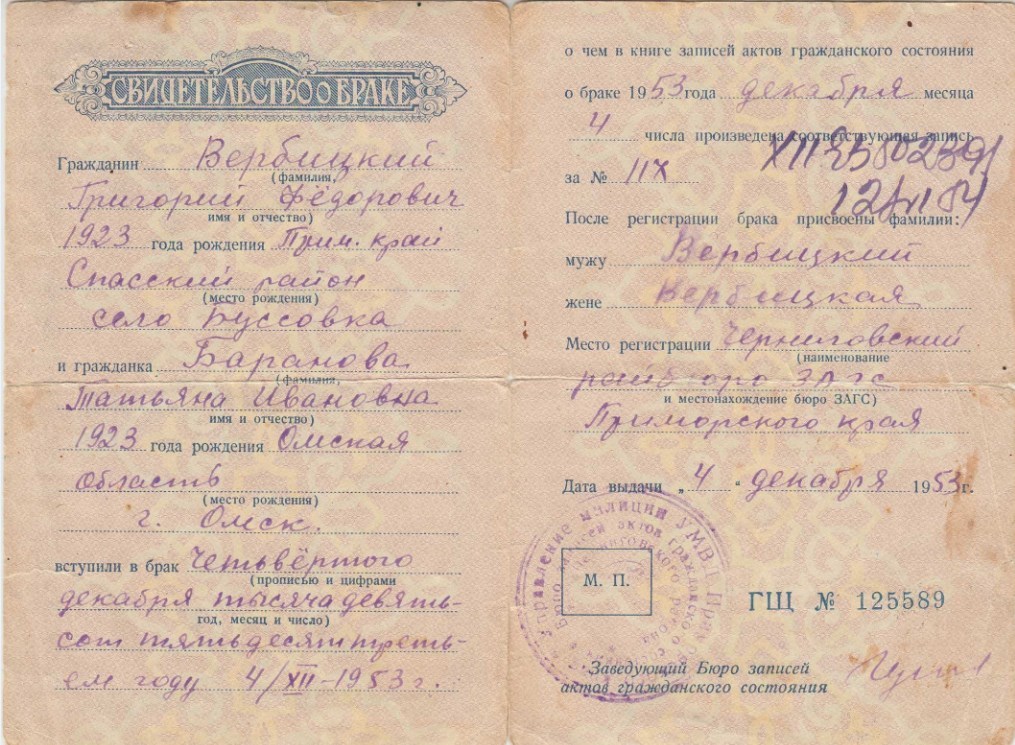 СВИДЕТЕЛЬСТВО О БРАКЕ
Гражданин Вербицкий
(фамилия,
Григорий Фёдорович
имя и отчество)
1923 года рождения Прим. край
Спасский район
(место рождения)
село Буссовка
и гражданка Баранова
(фамилия,
Татьяна Ивановна
имя и отчество)
1923 года рождения Омская
область
(место рождения)
г. Омск.
вступили в брак Четвёртого
(прописью и цифрами
декабря тысяча девять-
год, месяц и число)
сот пятьдесят треть-
ем году 4/XII-1953 г.
о чем в книге записей актов гражданского состояния
о браке 1953 года декабря месяца
4 числа произведена соответствующая запись
за №
После регистрации брака присвоены фамилии:
мужу Вербицкий
жене Вербицкая
Место регистрации Черниговский
(наименование
райбюро ЗАГС
и местонахождение бюро ЗАГС)
Приморского края
Дата выдачи „4" декабря 1953 г.
М. П.
ГЩ № 125589
Заведующий Бюро записей
актов гражданского состояния